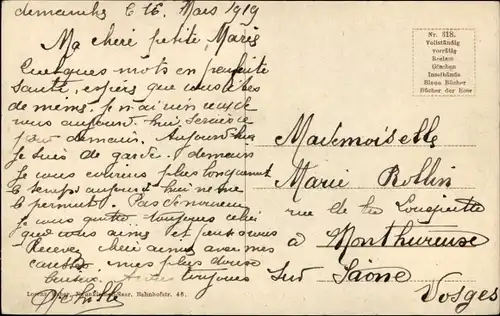 demanche le 16. Mars 1919
Ma chère petite Marie
Quelques mots en parfaite
santé, espère que vous êtes
de même. Je n'ai rien reçu de
vous aujourd'hui, serai-ce
pour demain. Aujourd'hui
je suis de garde. demain
je vous écrirai plus longuement
le temps aujourd'hui ne me
le permet. Pas de nouveau
je vous quitte toujours celui
que vous aime et pense à vous
Recevez chère amie avec mes
mes plus doux
baisers toujours
Achille
Nr. 318.
Vollständig
vorrätig
Reclam
Göschen
Inselbände
Blaue Bücher
Bücher der Rose
Mademoiselle
Marie Rollin
rue de la
à Monthureux
sur Saône
Vosges
Saar. Bahnhofstr. 46.